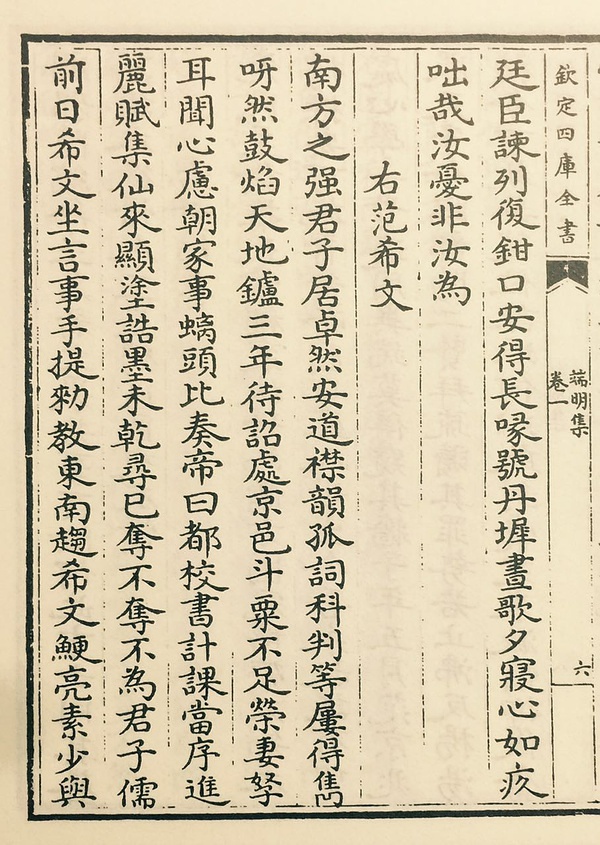 欽定四庫全書
端明集
卷一
六
廷臣諫列復鉗口安得長喙號丹墀晝歌夕寢心如疚
咄哉汝憂非汝為
右范希文
南方之强君子居卓然安道襟韻孤詞科判等屢得雋
呀然鼓焰天地鑪三年待詔處京邑斗粟不足榮妻孥
耳聞心慮朝家事螭頭比奏帝曰都校書計課當序進
麗賦集仙來顯塗誥墨未乾尋已奪不奪不為君子儒
前日希文坐言事手提勑教東南趨希文鯁亮素少與